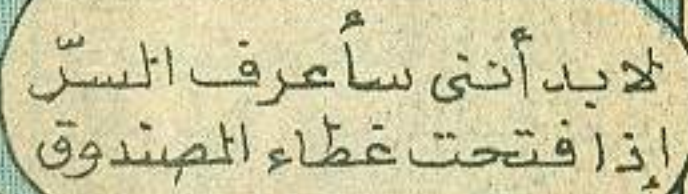 لابد أننى سأعرف السرّ
إذا فتحت غطاء الصندوق